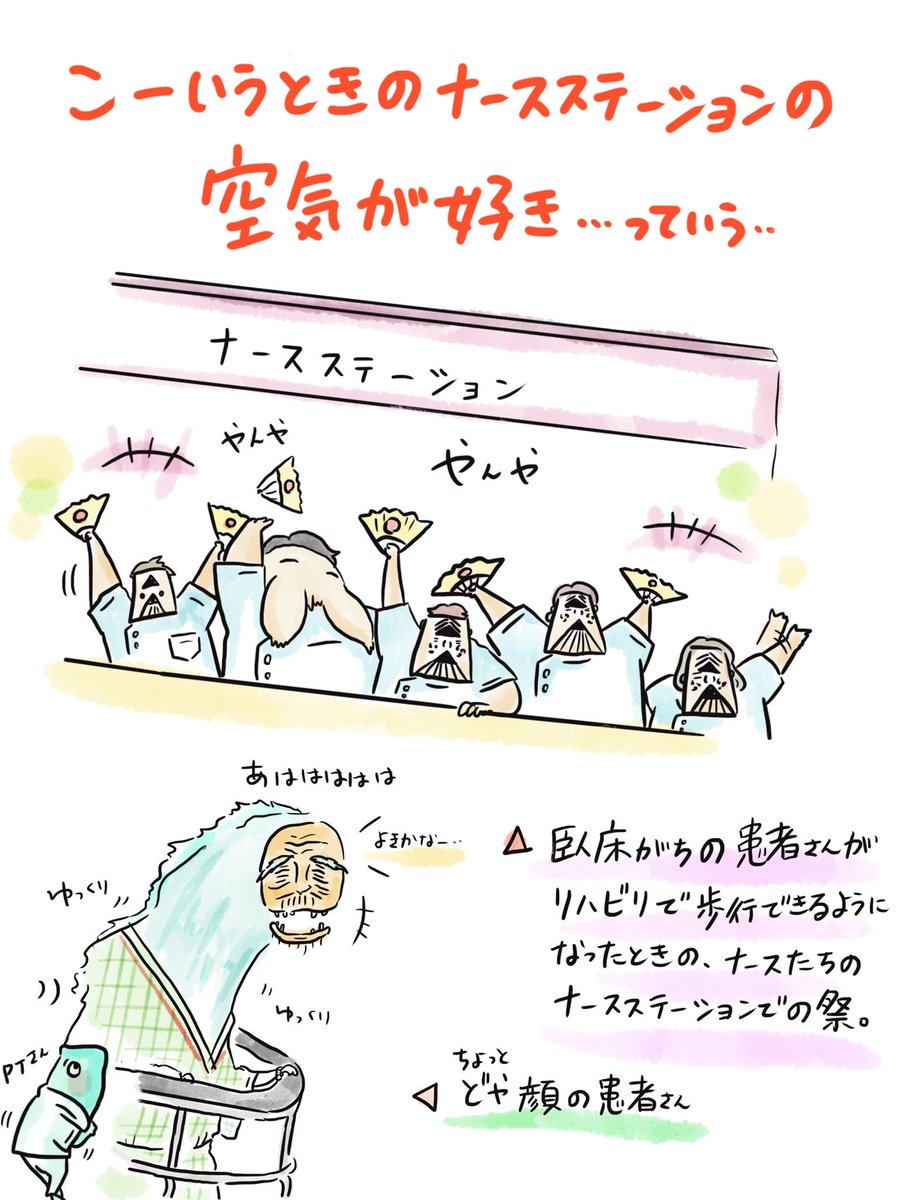 こーいうときのナースステーションの
空気が好き…っていう‥
ナースステーション
やんや
やんや
あはははは
よきかなー‥
ゆっくり
ゆっくり
PTさん
臥床がちの患者さんが
リハビリで歩行できるように
なったときの、ナースたちの
ナースステーションでの祭。
ちょっと
どや顔の患者さん